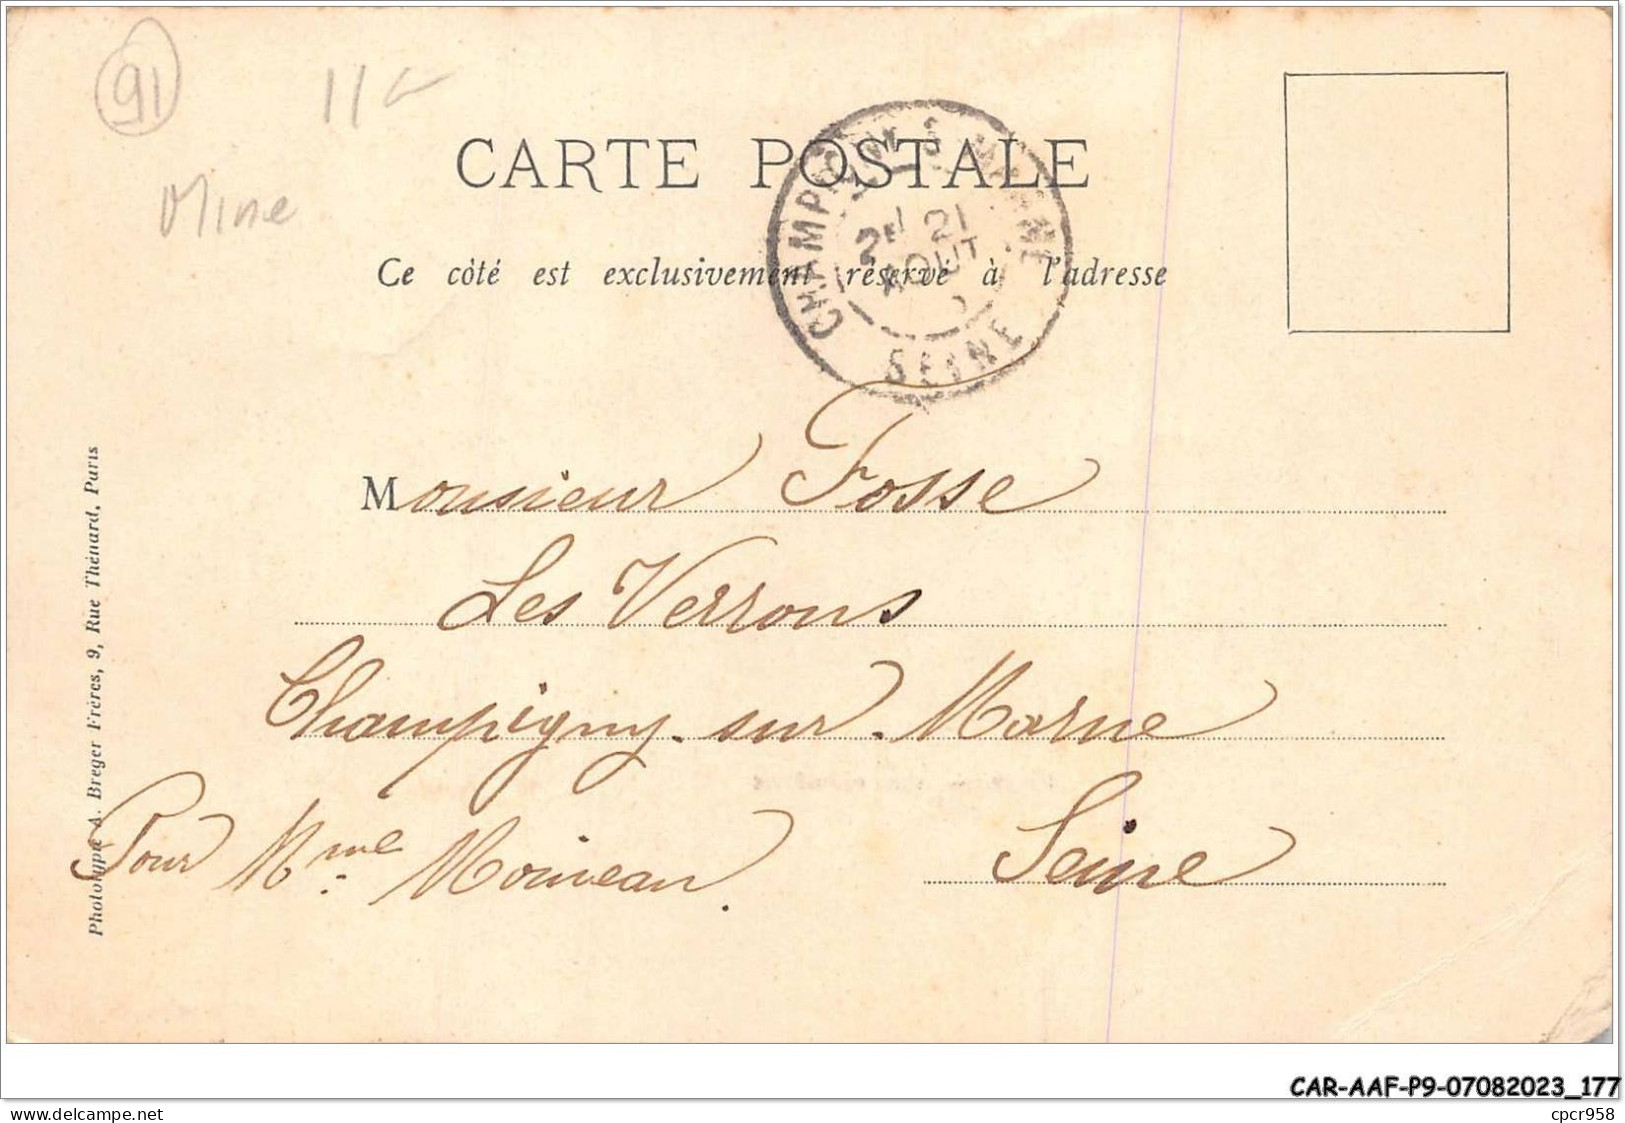 91
11
Mine
CARTE POSTALE
CHAMPIGNY-S-MARNE
2ᵉ 21
AOUT
SEINE
Ce côté est exclusivement réservé à l'adresse
Monsieur Fosse
Les Verrons
Champigny-sur-Marne
Seine
Pour Mme Moineau.
Phototypie A. Breger Frères, 9, Rue Thénard, Paris
CAR-AAF-P9-07082023_177
delcampe.net
cpcr958